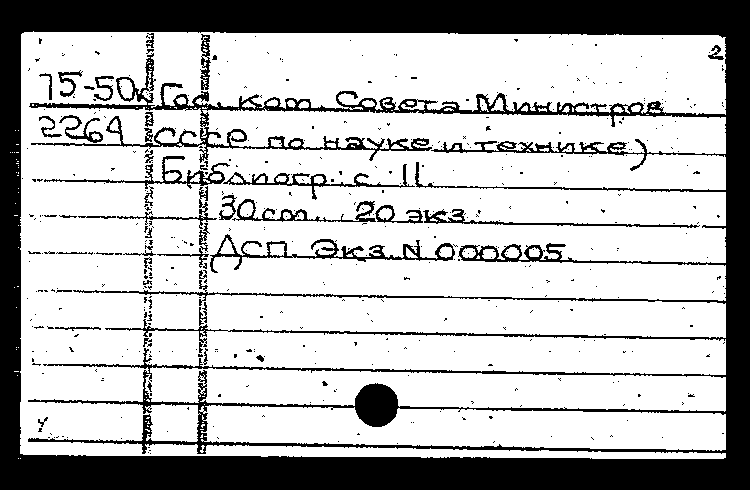 2
75-50к Гос. ком. Совета Министров
2264 СССР по науке и технике)
Библиогр.: с. 11.
30 см. 20 экз.
ДСП. Экз. N 000005.
у